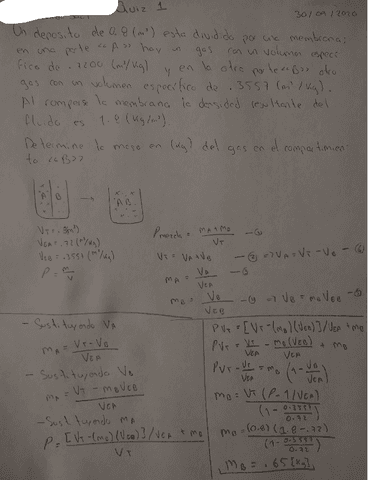 Quiz 1
30/09/2020
Un deposito de 0.8 (m³) esta dividido por una membrana;
en una parte <<A>> hay un gas con un volumen especi
fico de .7200 (m³/kg) y en la otra parte <<B>> otro
gas con un volumen especifico de .3557 (m³/kg).
Al romperse la membrana la densidad resultante del
fluido es 1.8 (kg/m³).
Determine la masa en (kg) del gas en el compartimien
to <<B>>
A B → AB
VT = .8(m³)
VEA = .72(m³/kg)
VEB = .3557(m³/kg)
ρ = m/v
ρmezcla = mA + mB / VT
VT = VA + VB ⇒ VA = VT - VB
mA = VA / VEA
mB = VB / VEB ⇒ VB = mB VEB
- Sustituyendo VA
mA = VT - VB / VEA
- Sustituyendo VB
mA = VT - mB VEB / VEA
- Sustituyendo mA
ρ = [VT - (mB)(VEB)] / VEA + mB / VT
ρVT = [VT - (mB)(VEB)] / VEA + mB
ρVT = VT / VEA - mB(VEB) / VEA + mB
ρVT - VT / VEA = mB (1 - VEB / VEA)
mB = VT (ρ - 1/VEA) / (1 - 0.3557 / 0.72)
mB = (0.8)(1.8 - .72) / (1 - 0.3557 / 0.72)
mB = .65 [kg]